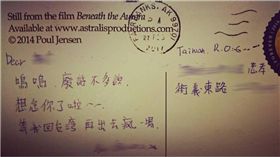 Still from the film Beneath the Aurora
Available at www.astralisproductions.com
© 2014 Poul Jensen
FAIRBANKS, AK 99701
Dear
嗚嗚,廢話不多說
想念你了啦~~
等我回台灣再出去瘋一場
Taiwan, R.O.C
忠孝
街義東路